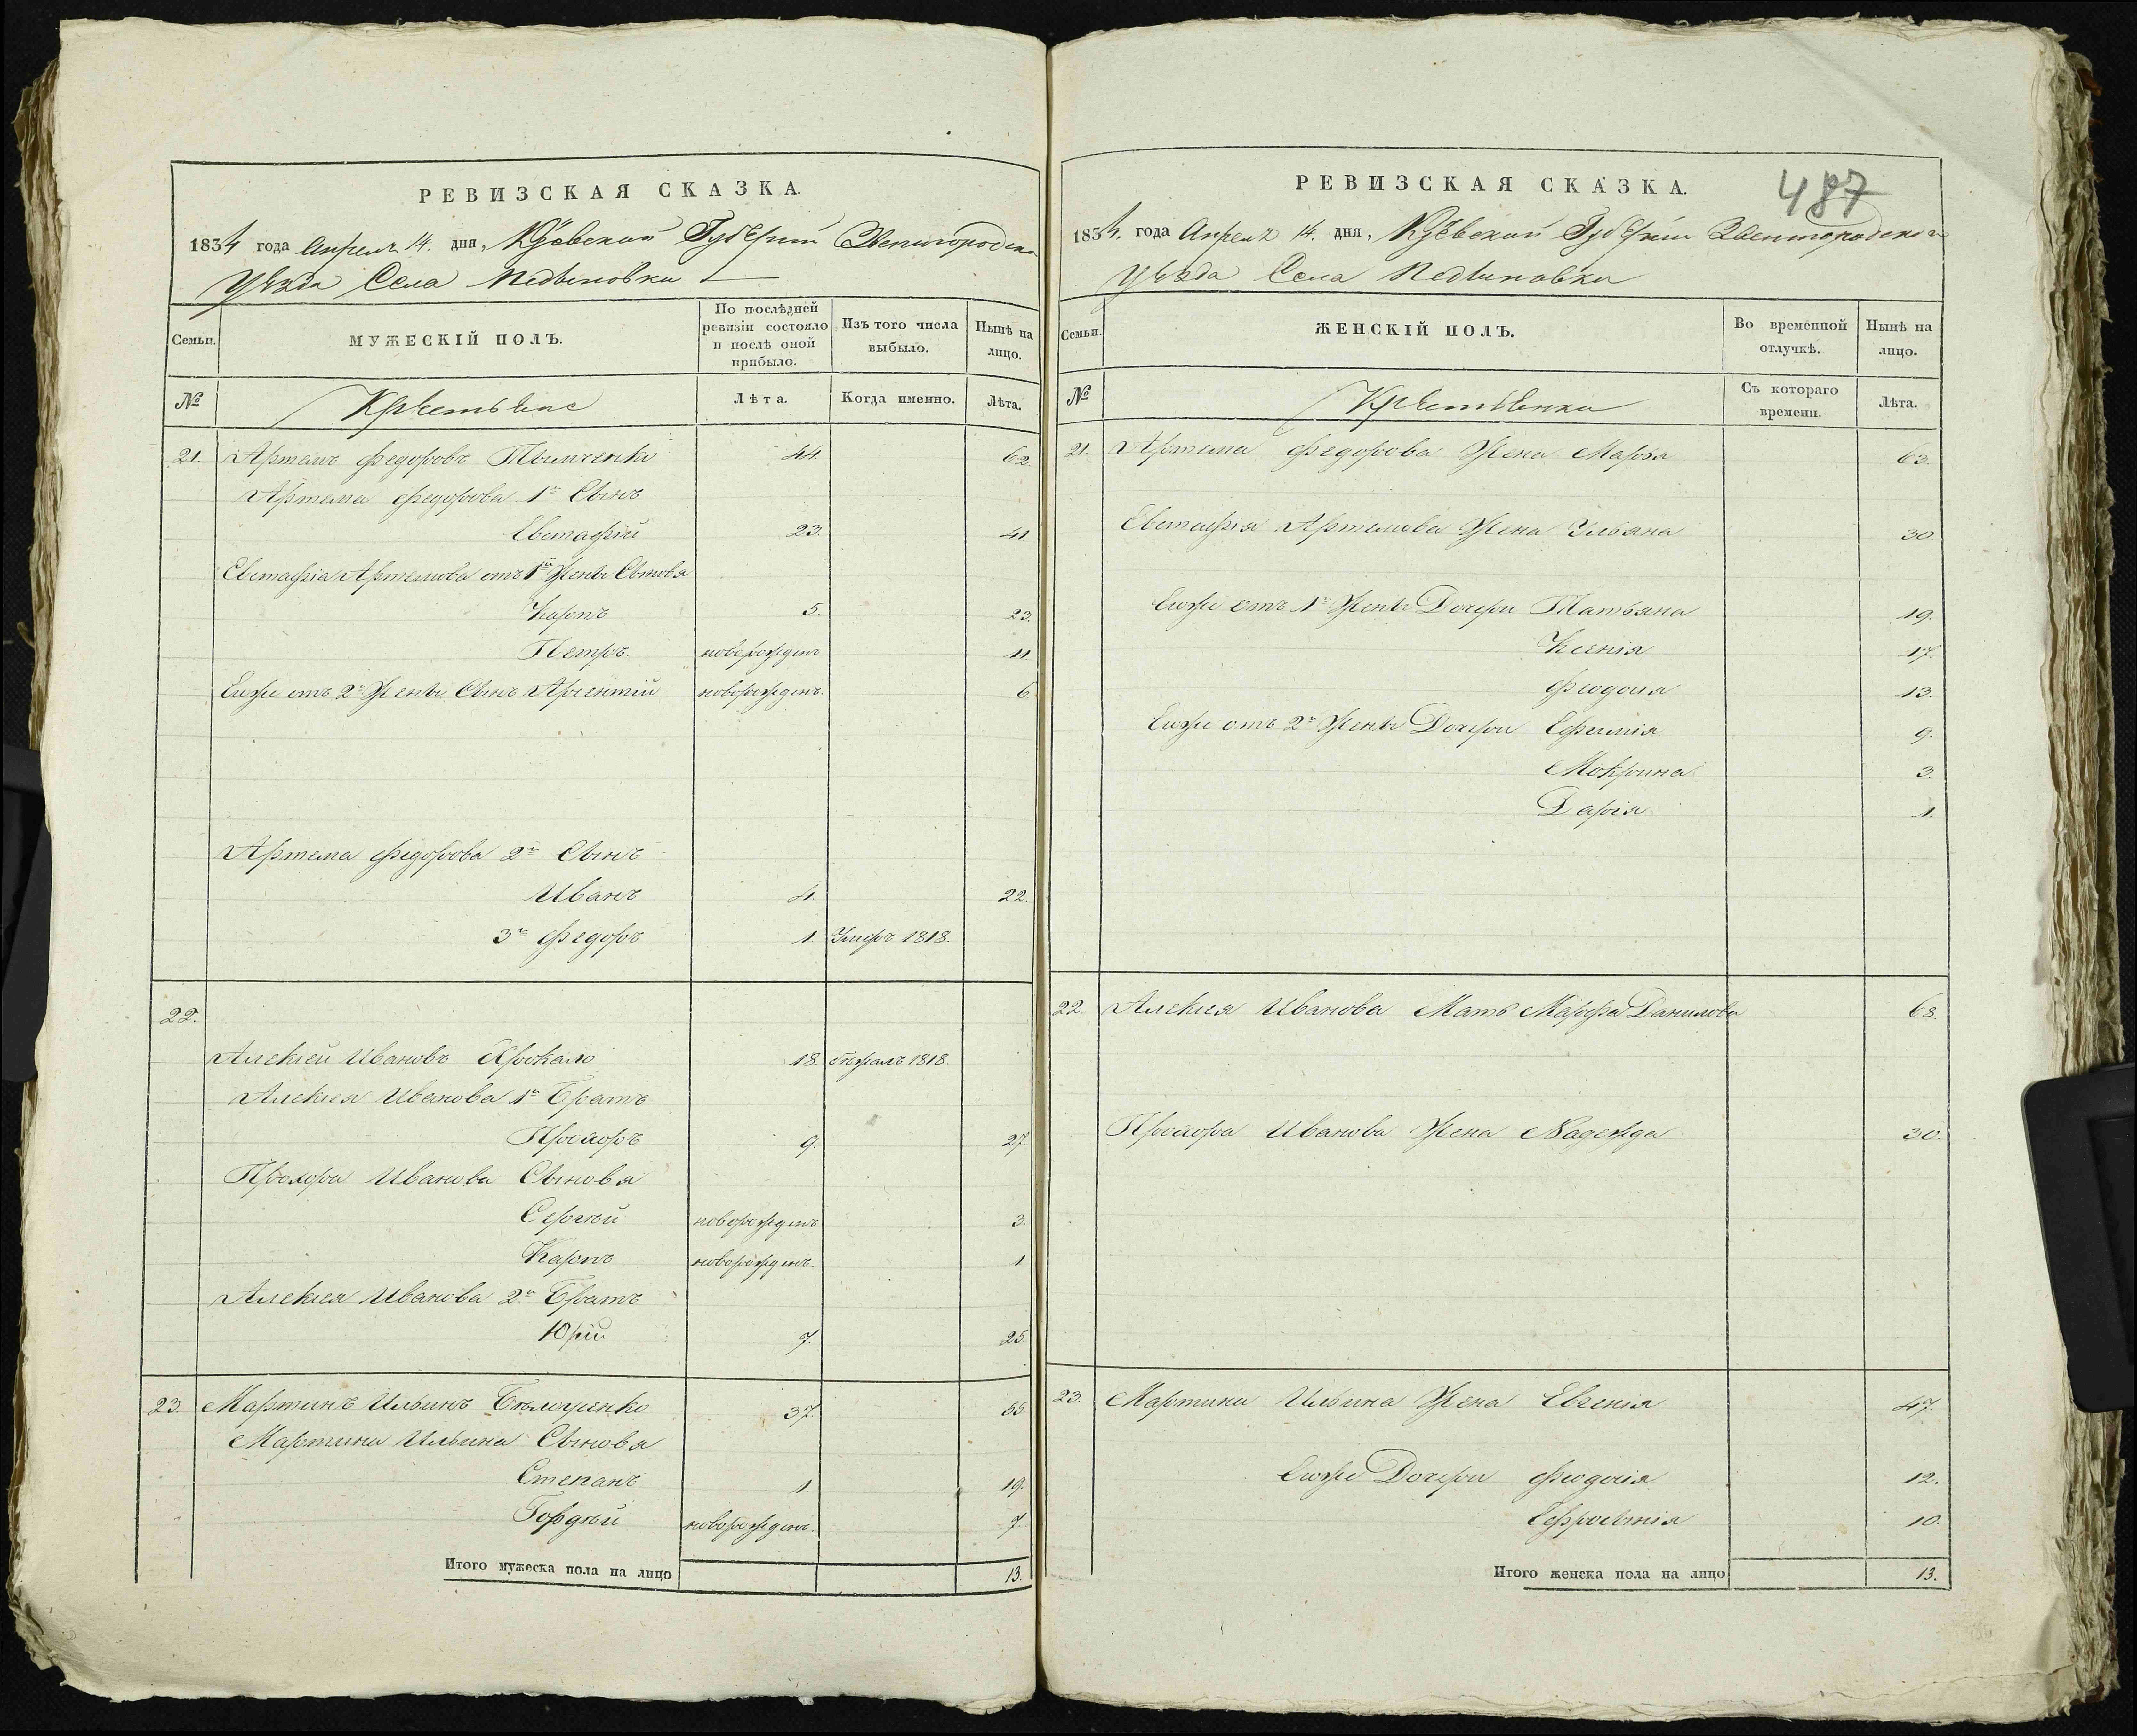 РЕВИЗСКАЯ СКАЗКА.
1834 года Апреля 14. дня, Кіевской Губерніи Звенигородска
Уѣзда Села Педыновки
Семьи.
МУЖЕСКІЙ ПОЛЪ.
По послѣдней ревизіи состояло и послѣ оной прибыло.
Изъ того числа выбыло.
Нынѣ на лицо.
№
Крестьяне
Лѣта.
Когда именно.
Лѣта.
21. Артемъ Федоровъ 44. 62.
Артема Федорова 1й Сынъ
Евстафій 23. 41.
Евстафіа Артемова отъ 1й Жены Сыновя
Карпъ 5. 23.
Петръ новорожденъ 11.
Егоже отъ 2й Жены Сынъ Арсентій новорожденъ. 6
Артема Федорова 2й Сынъ
Иванъ 4. 22.
3й Федоръ 1. Умеръ 1818.
22.
Алексей Ивановъ 18 бѣжалъ 1818.
Алексея Иванова 1й Братъ
Прохоръ 9. 27.
Прохора Иванова Сыновя
Сергѣй новорожденъ 3.
Карпъ новорожденъ. 1
Алексея Иванова 2й Братъ
Юрій 7. 25
23. Мартинъ Ильинъ 37. 55
Мартина Ильина Сыновя
Степанъ 1. 19.
Гордѣй новорожденъ. 7.
Итого мужеска пола на лицо 13.
487
РЕВИЗСКАЯ СКАЗКА.
1834. года Апреля 14. дня, Кіевской Губерніи Звенигородскаго
Уѣзда Села Педыновки
Семьи.
ЖЕНСКІЙ ПОЛЪ.
Во временной отлучкѣ.
Нынѣ на лицо.
№
Крестьянки
Съ котораго времени.
Лѣта.
21. Артема Федорова Жена Марья 63.
Евстафія Артемова Жена Ульяна 30
Егоже отъ 1й Жены Дочери Татьяна 19.
Ксенія 17.
Феодосия 13.
Егоже отъ 2й Жены Дочери Ефимія 9.
Мокрина 3.
Дарія 1.
22. Алексея Иванова Мать Марфа Данилова 68.
Прохора Иванова Жена Надежда 30.
23. Мартина Ильина Жена Евгенія 47.
Егоже Дочери Феодосія 12.
Ефросинія 10.
Итого женска пола на лицо 13.